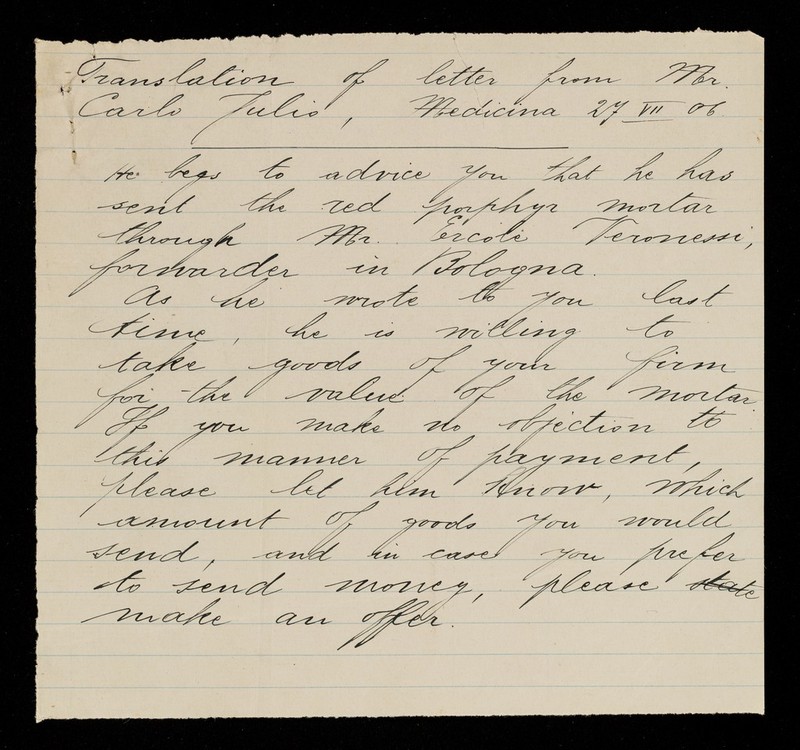 Translation of letter from Mr.
Carlo Julio, Medicina 27 VII 06
He begs to advice you that he has
sent the red porphyr mortar
through Mr. Ercole Veronessi,
forwarder in Bologna.
As he wrote to you last
time, he is willing to
take goods of your firm
for the value of the mortar.
If you make no objection to
this manner of payment,
please let him know, which
amount of goods you would
send, and in case you prefer
to send money, please state
make an offer.